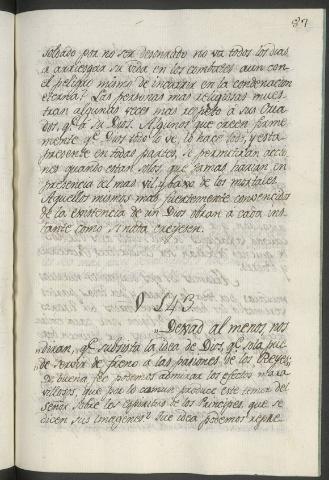 87
soldado por no ser desonrado no va todos los dias
a arriesgar su vida en los combates aun con
el peligro mismo de incurrir en la condenacion
eterna? Las personas mas religiosas mues-
tran algunas veces mas respeto à sus Cria
dos, qe. à su Dios. Algunos que creen firme
mente qe. Dios todo lo ve, lo sabe todo, y esta
presente en todas partes, se permitiran accio
nes quando estan solos, que jamas harian en
presencia del mas vil, y baxo de los mortales.
Aquellos mismos mas fuertemente convencidos
de la existencia de un Dios obran a cada ins
tante como si nada creyesen.
§ 143.
"Dexad al menos, nos
"diran, qe. subsista la idea de Dios, qe. sola pue
"de servir de freno a las pasiones de los Reyes;
De buena fee podemos admirar los efectos mara
villosos, que por lo comun produce este temor del
Señor sobre los espiritus de los Principes, que se
dicen sus imagenes? Que idea podemos